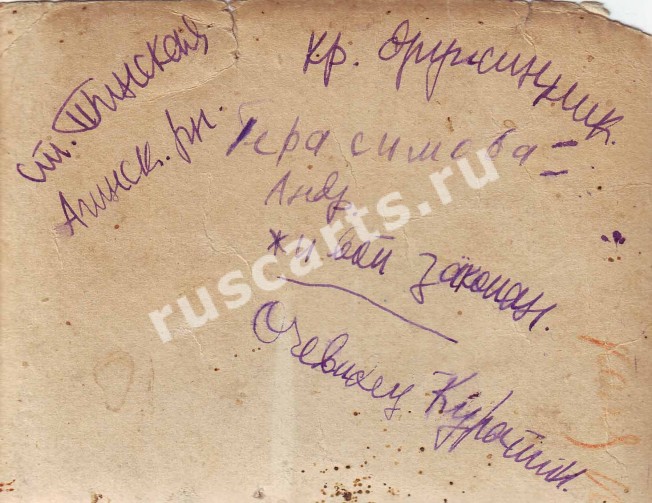 ст. Шинская
Агинск. рн.
кр. дружинник.
Герасимова =
Анд
живой закопан.
Очевидец Курочкин.
ruscarts.ru